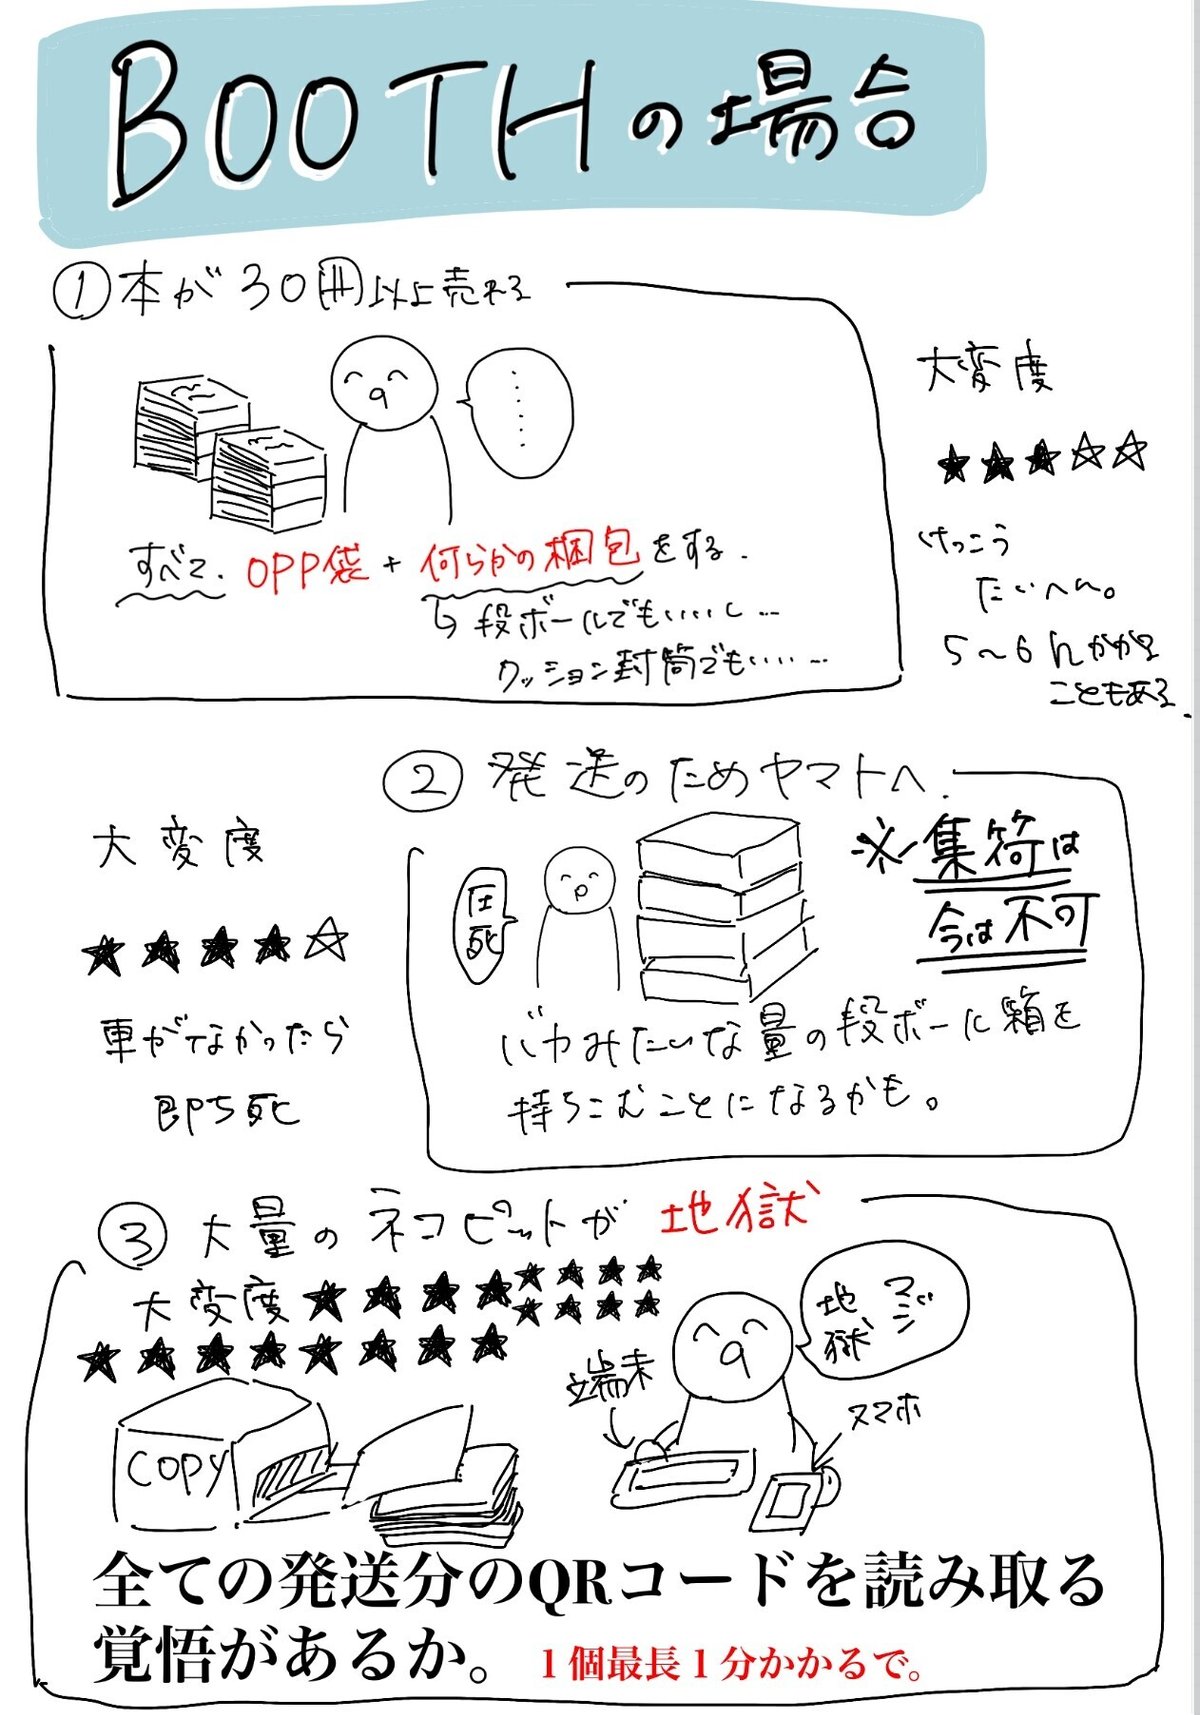 BOOTHの場合
①本が30冊以上売れる
・・・・・・
すべて、OPP袋+何らかの梱包をする.
↳段ボールでもいいし…
クッション封筒でもいい…
大変度
★★★☆☆
けっこう
たいへん。
5〜6hかかる
こともある.
②発送のためヤマトへ.
圧死
※集荷は
今は不可
バカみたいな量の段ボール箱を
持ちこむことになるかも。
大変度
★★★★☆
車がなかったら
即ち死
③大量のネコピットが地獄
大変度★★★★★★★★
★★★★
★★★★★★★★
マジ
地獄
端末
スマホ
COPY
全ての発送分のQRコードを読み取る
覚悟があるか。1個最長1分かかるで。